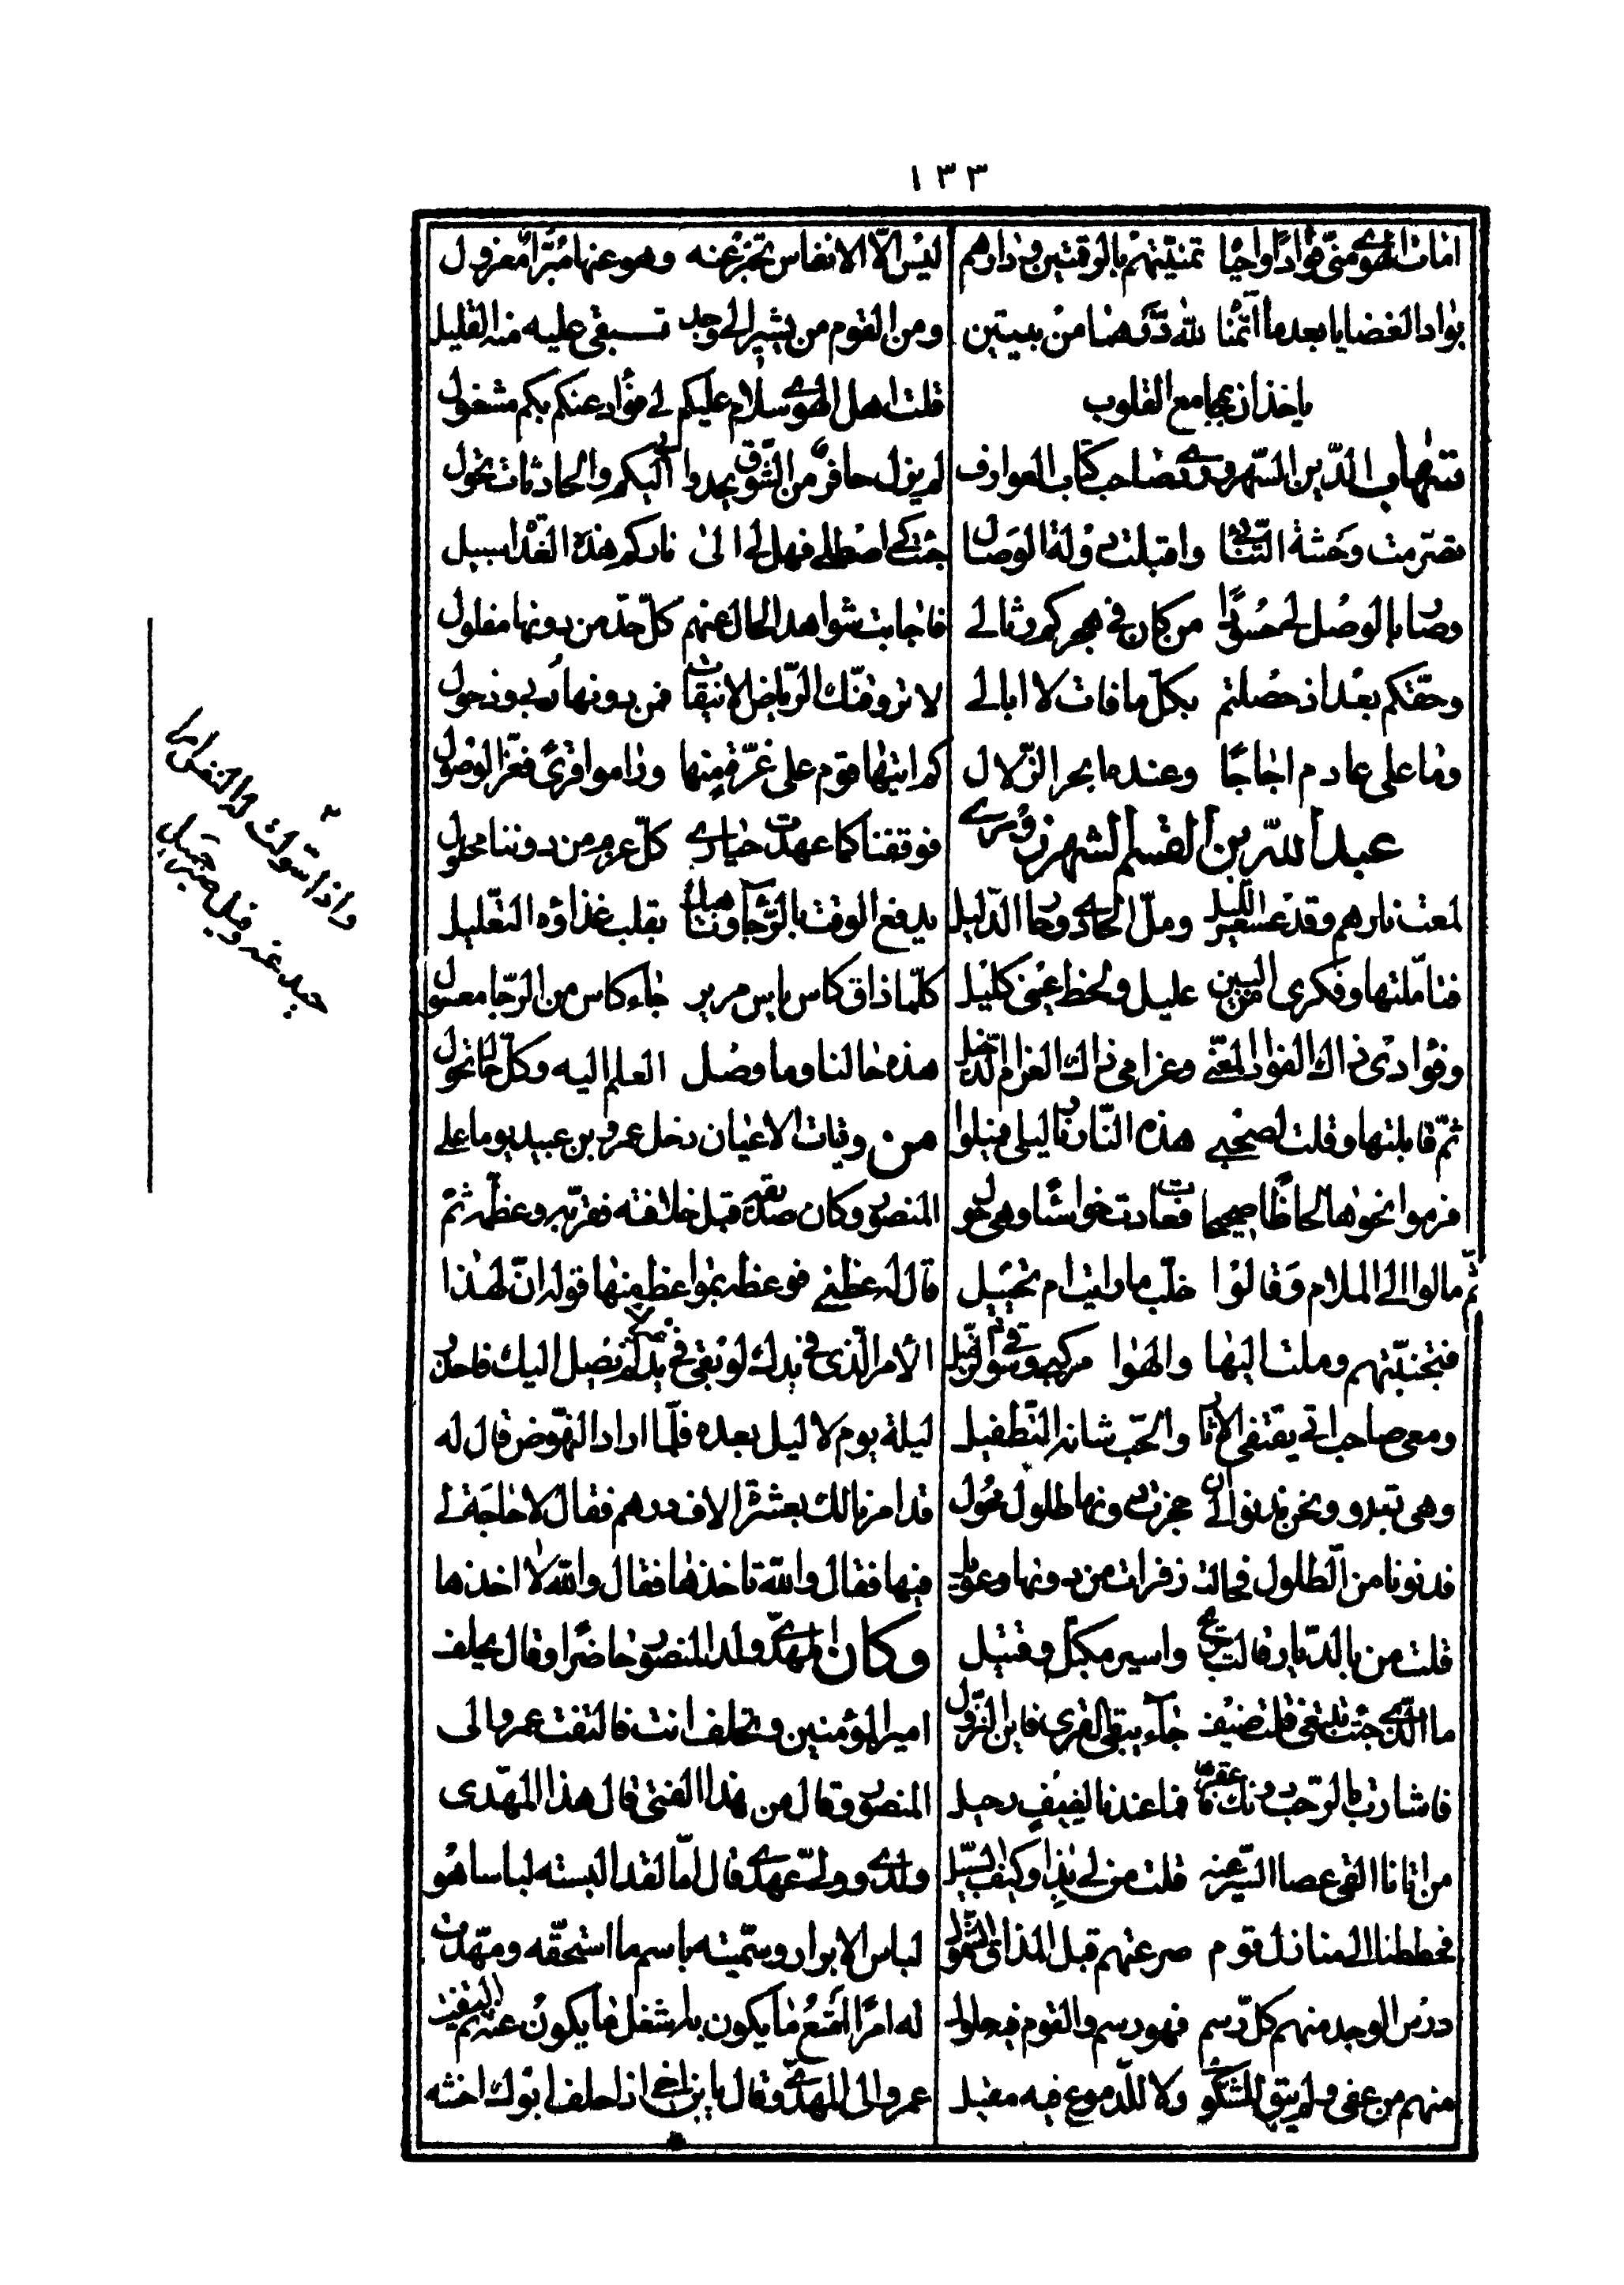 ١٣٣
امات الهوى منّى فؤادًا واحيا تمنيّتهم بالرقمتين ودارهم
بواد الغضايا بعد ما اتمنّا لله درّهما من بيتين
ياخذان بمجامع القلوب
شهاب الدّين السّهروردى صاحب كتاب العوارف
تصرّمت وحشة التنائى واقبلت دولة الوصال
وصار بالوصل لى حسودًا من كان فى هجركم رثالى
وحقكم بعد اذ حصلتم بكلّ ما فات لا ابالى
وما على عادم اجاجًا وعنده ابحر الزّلال
عبد الله بن القسم الشهرزورى
لمعت نارهم وقد عسعس الليل وملّ الحادى وحار الدّليل
فتأمّلتها وفكرى من البين عليل ولحظ عينى كليل
وفؤادى ذاك الفؤاد المعنّى وغرامى ذاك الغرام الدّخيل
ثمّ قابلتها وقلت لصحبى هذه النّار نار ليلى فميلوا
فرموا نحوها لحاظًا صحيحا فعادت خواسئًا وهى حول
ثمّ مالوا الى الملام وقالوا خلّب ما رايت ام تخييل
فتجنّبتهم وملت اليها والهوا مركبى وشوقى الزّميل
ومعى صاحب اتى يقتفى الاثار والحبّ شانه التّطفيل
وهى تبدو ونحن ندنو الى ان حجزت دونها طلول محول
فدنونا من الطلول فحالت زفرات من دونها وعويل
قلت من بالدّيار قالت جريح واسير مكبّل وقتيل
ما الّذى جئت تبتغى قلت ضيف جآء يبغى القرى فاين النزول
فاشارت بالرّحب دونك فاعقرها فما عندنا لضيف رحيل
من اتانا القى عصا السّير عنه قلت من لى بذا وكيف السّبيل
فحططنا الى منازل قوم صرعتهم قبل المذاق الشّمول
درس الوجد منهم كلّ رسم فهو رسم والقوم فيه حلول
منهم من عفى ولم يبق للشكوى ولا للدّموع فيه مقيل
ليس الّا الانفاس تخبر عنه وهو عنها مبرّأ معزول
ومن القوم من يشير الى وجد تبقى عليه منه القليل
قلت اهل الهوى سلام عليكم لى فؤاد عنكم بكم مشغول
لم يزل حافز من الشّوق يحدوا بى اليكم والحادثات تحول
جئت كى اصطلى فهل لى الى ناركم هذه الغداة سبيل
فاجابت شواهد الحال عنهم كلّ حدّ من دونها مفلول
لا تروقنّك الرّياض الانيقات فمن دونها ربى ودحول
كم اتيها قوم على غرّة منها وراموا قرًى فعزّ الوصول
فوقفنا كما عهدت حيارى كلّ عزم من دوننا محلول
يدفع الوقت بالرّجآ وناهيك بقلب غذاؤه التعليل
كلّما ذاق كاس ياس مرير جآء كاس من الرّجا معسول
هذه حالنا وما وصل العلم اليه وكلّ حال تحول
من وفيات الاعيان دخل عمرو بن عبيد يوما على
المنصور وكان صديقه قبل خلافته فقرّبه وعظّمه ثمّ
قال له عظنى فوعظه بمواعظ منها قوله انّ هذا
الأمر الّذى فى يدك لو بقى فى يد غيرك لم يصل اليك فاحذر
ليلة يوم لا ليل بعده فلّما اراد النّهوض قال له
قد امرنا لك بعشرة الاف درهم فقال لا حاجة لى
فيها فقال والله تاخذها فقال والله لا اخذها
وكان المهدىّ ولد المنصور حاضرًا وقال يحلف
امير المؤمنين وتحلف انت فالتفت عمرو الى
المنصور وقال من هذا الفتى قال هذا المهدى
ولدى وولىّ عهدى قال امّا لقد البسته لباسا هو
لباس الابرار وسمّيته باسم ما استحقّه ومهّدت
له امرًا امتع ما يكون به اشغل ما يكون عنه ثم التفت
عمرو الى المهدىّ وقال يا ابن اخى اذا حلف ابوك احنثه